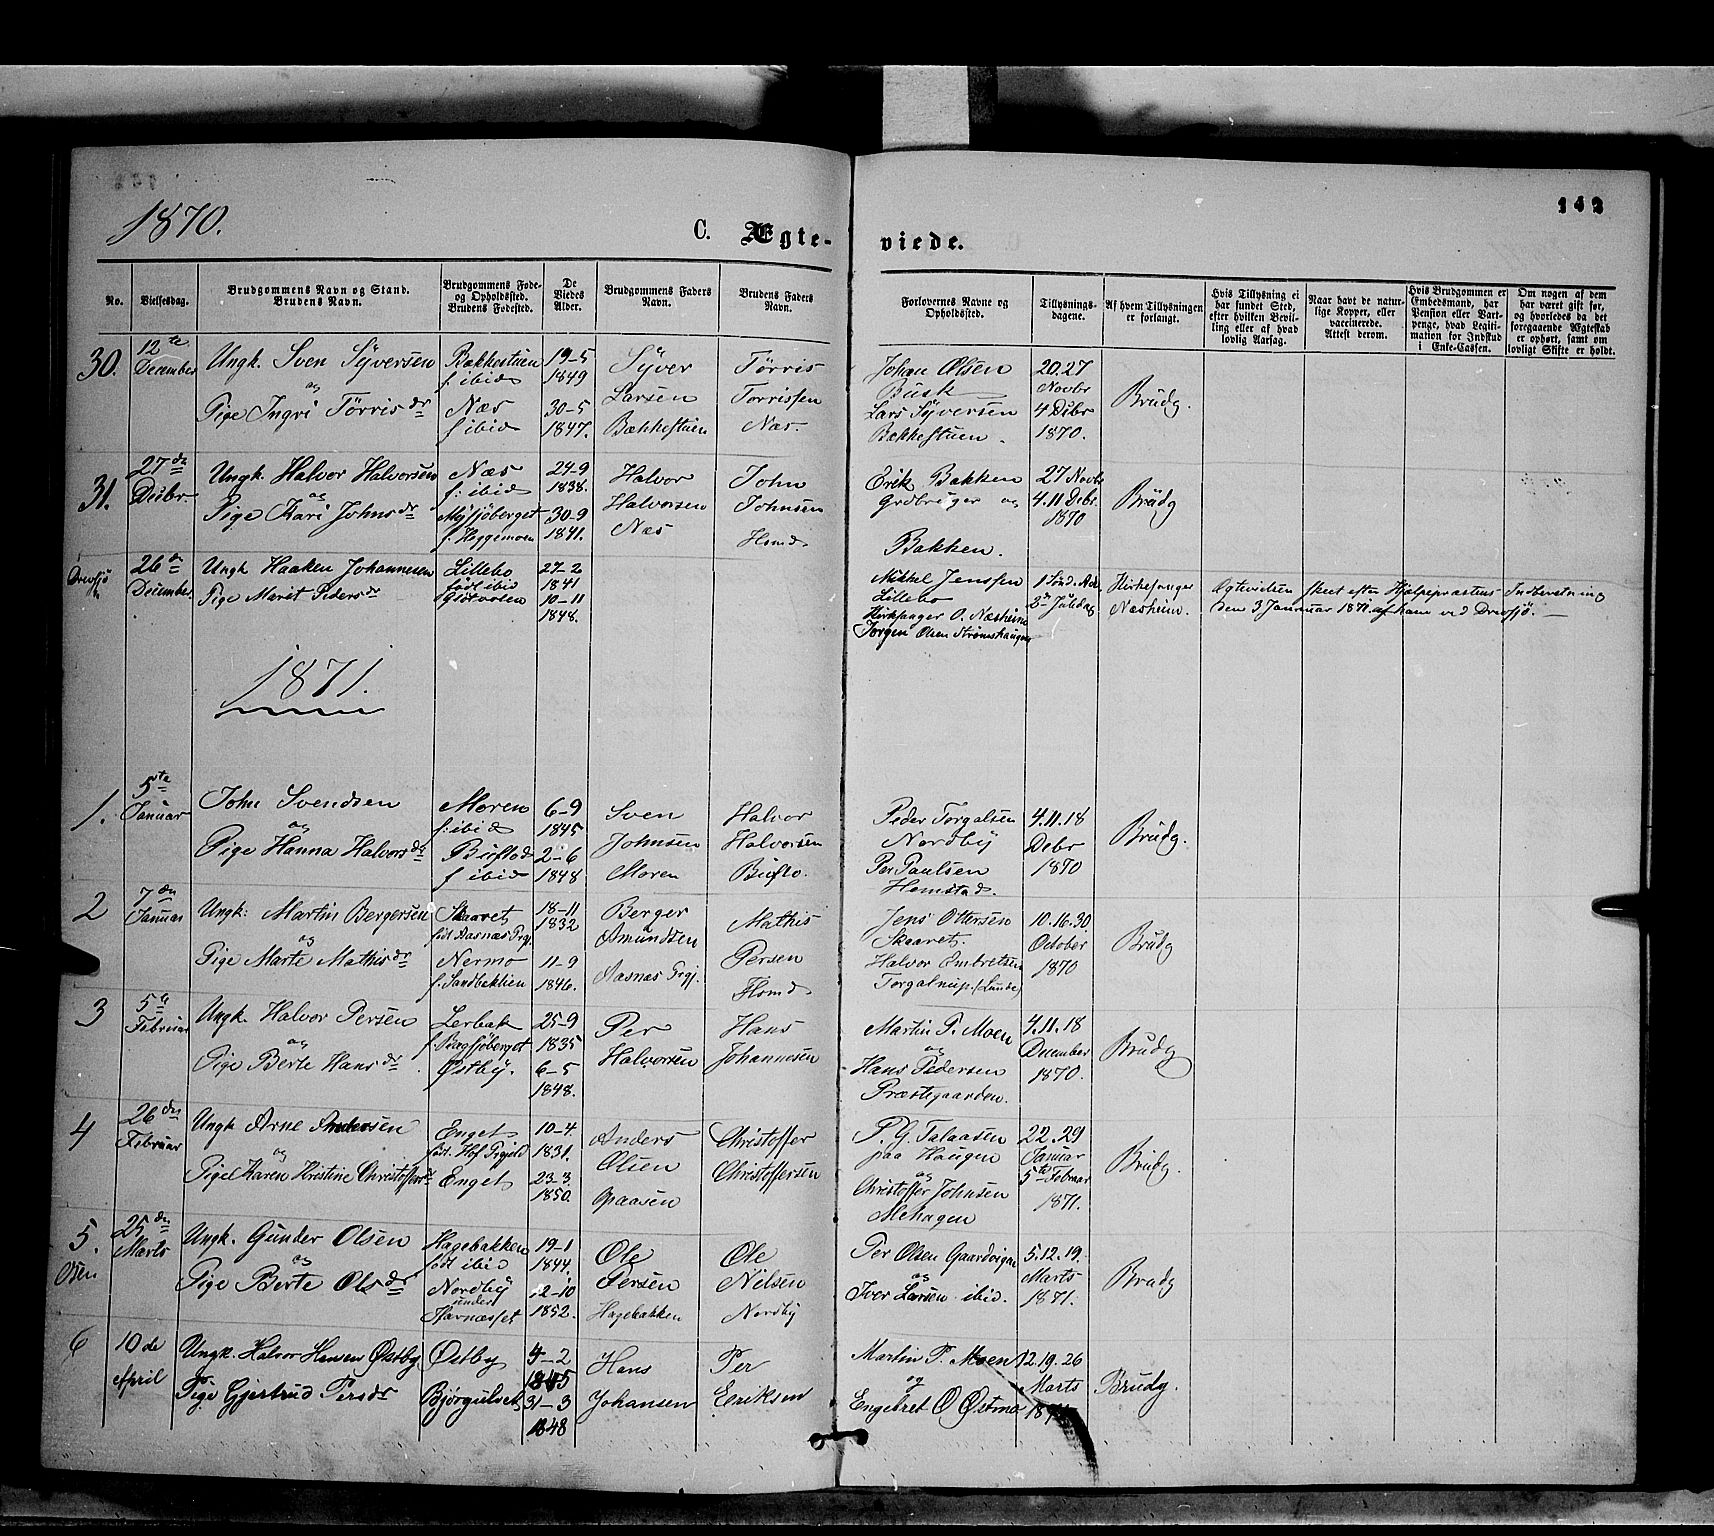 142
1870.
C. Ægte-
viede.
No.
Vielsesdag.
Brudgommens Navn og Stand.
Brudens Navn.
Brudgommens Føde-
og Opholdssted.
Brudens Fødested.
De
Viedes
Alder.
Brudgommens Faders
Navn.
Brudens Faders
Navn.
Forlovernes Navne og
Opholdssted.
Tillysnings-
dagene.
Af hvem Tillysningen
er forlangt.
Hvis Tillysning ei
har fundet Sted,
efter hvilken Bevil-
ling eller af hvad
lovlig Aarsag.
Naar havt de natur-
lige Kopper, eller
vaccinerede.
Attest derom.
Hvis Brudgommen er
Embedsmand, har
Pension eller Vart-
penge, hvad Legiti-
mation for Indskud
i Enke-Cassen.
Om nogen af dem
har været gift før,
og hvorledes da det
foregaaende Ægteskab
er ophørt, samt om
lovligt Skifte er holdt.
30.
12te
December
Ungk. Sven Syversen
og
Pige Ingri Törrisdr
Bakkestuen
f. ibid
Næs
f ibid
19-5
1849
30-5
1847.
Syver
Larsen
Bækkestuen
Törris
Torrissen
Næs.
Johan Olsen
Busk
Lars Syversen
Bækkestuen.
20.27
Novbr
4 Debr
1870.
Brudg.
31.
27de
Debr.
Ungk. Halvor Halvorsen
og
Pige Kari Johnsdr
Næs
f: ibid
Mysjöberget
f. Heggemoen
24-9
1838.
30-9
1841.
Halvor
Halvorsen
Næs
John
Johnsen
Homd
Erik Bakken
Grdbruger og
Bakken.
27 Novbr
4.11 Debr.
1870
Brudg
Drevsjö
26de
December
Ungk Haaken Johannesen
Pige Maret Pedersdr
Lillebo
født ibid
Gjötvolen
27-2
1841
10-11
1848.
Mikkel Jenssen
Lillebo
Kirksanger O. Næsheim
Jørgen Olsen Strömshaugen
1 Sönd. Adv.
2den Juledag
Kirkesanger
Næsheim.
Ægtevielsen skeet efter Hjælpepræstens Indberetning
den 3 Januar 1871 af ham ved Drevsjö.
1871.
1.
5te
Januar
John Svendsen
og
Pige Hanna Halvorsdr
Moren
f: ibid
Buflod
f ibid
6-9
1845
2-6
1848
Sven
Johnsen
Moren
Halvor
Halvorsen
Buflo.
Peder Torgalsen
Nordby
Per Paulsen
Homstad.
4.11.18
Debr
1870
Brudg.
2
7de
Januar
Ungk: Martin Bergersen
og
Pige Marte Mathisdr
Skaaret
født Aasnæs Prgj.
Nermo
f. Sandbakken
18-11
1832
11-9
1846.
Berger
Amundsen
Aasnæs Prgj.
Mathis
Persen
Homd
Jens Ottersen
Skaaret.
Halvor Embretsen
Torgalrup (Lunde)
10.16.30.
October
1870
Brudg
3
5te
Februar
Ungk. Halvor Persen
og
Pige Berte Hansdr
Lerbak
f. Bagsjöberget
Østby.
25-9
1835
6-5
1848.
Per
Halvorsen
Hans
Johannesen
Martin P. Moen
og
Hans Pedersen
Præstegaarden.
4.11.18
December
1870.
Brudg
4
26de
Februar
Ungk Arne Andersen
og
Pige Karen Kristine Christoffersdr
Enget
født. Hof Prgjeld
Enget
10-4.
1831.
23-3.
1850.
Anders
Olsen
Opaasen
Christoffer
Christoffersen
P. G. Talaasen
paa Haugen
og
Christoffer Johnsen
Mehagen
22.29
Januar
5te Februar
1871.
Brudg.
5.
Osen
25de
Marts
Ungk. Gunder Olsen
og
Pige Berte Olsdr
Hagebakken
født ibid
Nordby
under
Stavnæsset
19-1
1844.
12-10
1852.
Ole
Persen
Hagebakken
Ole
Nilsen
Nordby
Per Olsen Gaardvigen
og
Iver Larsen ibid.
5.12.19.
Marts
1871.
Brudg
6
10de
April
Ungk. Halvor Hansen Østby
Pige Gjertrud Persdr
Østby
Bjørgulset
5-2
1845
31-3
1848
Hans
Johansen
Per
Eriksen
Martin P. Moen
og
Engebret O Østmo
12.19.26
Marts
1871
Brudg.